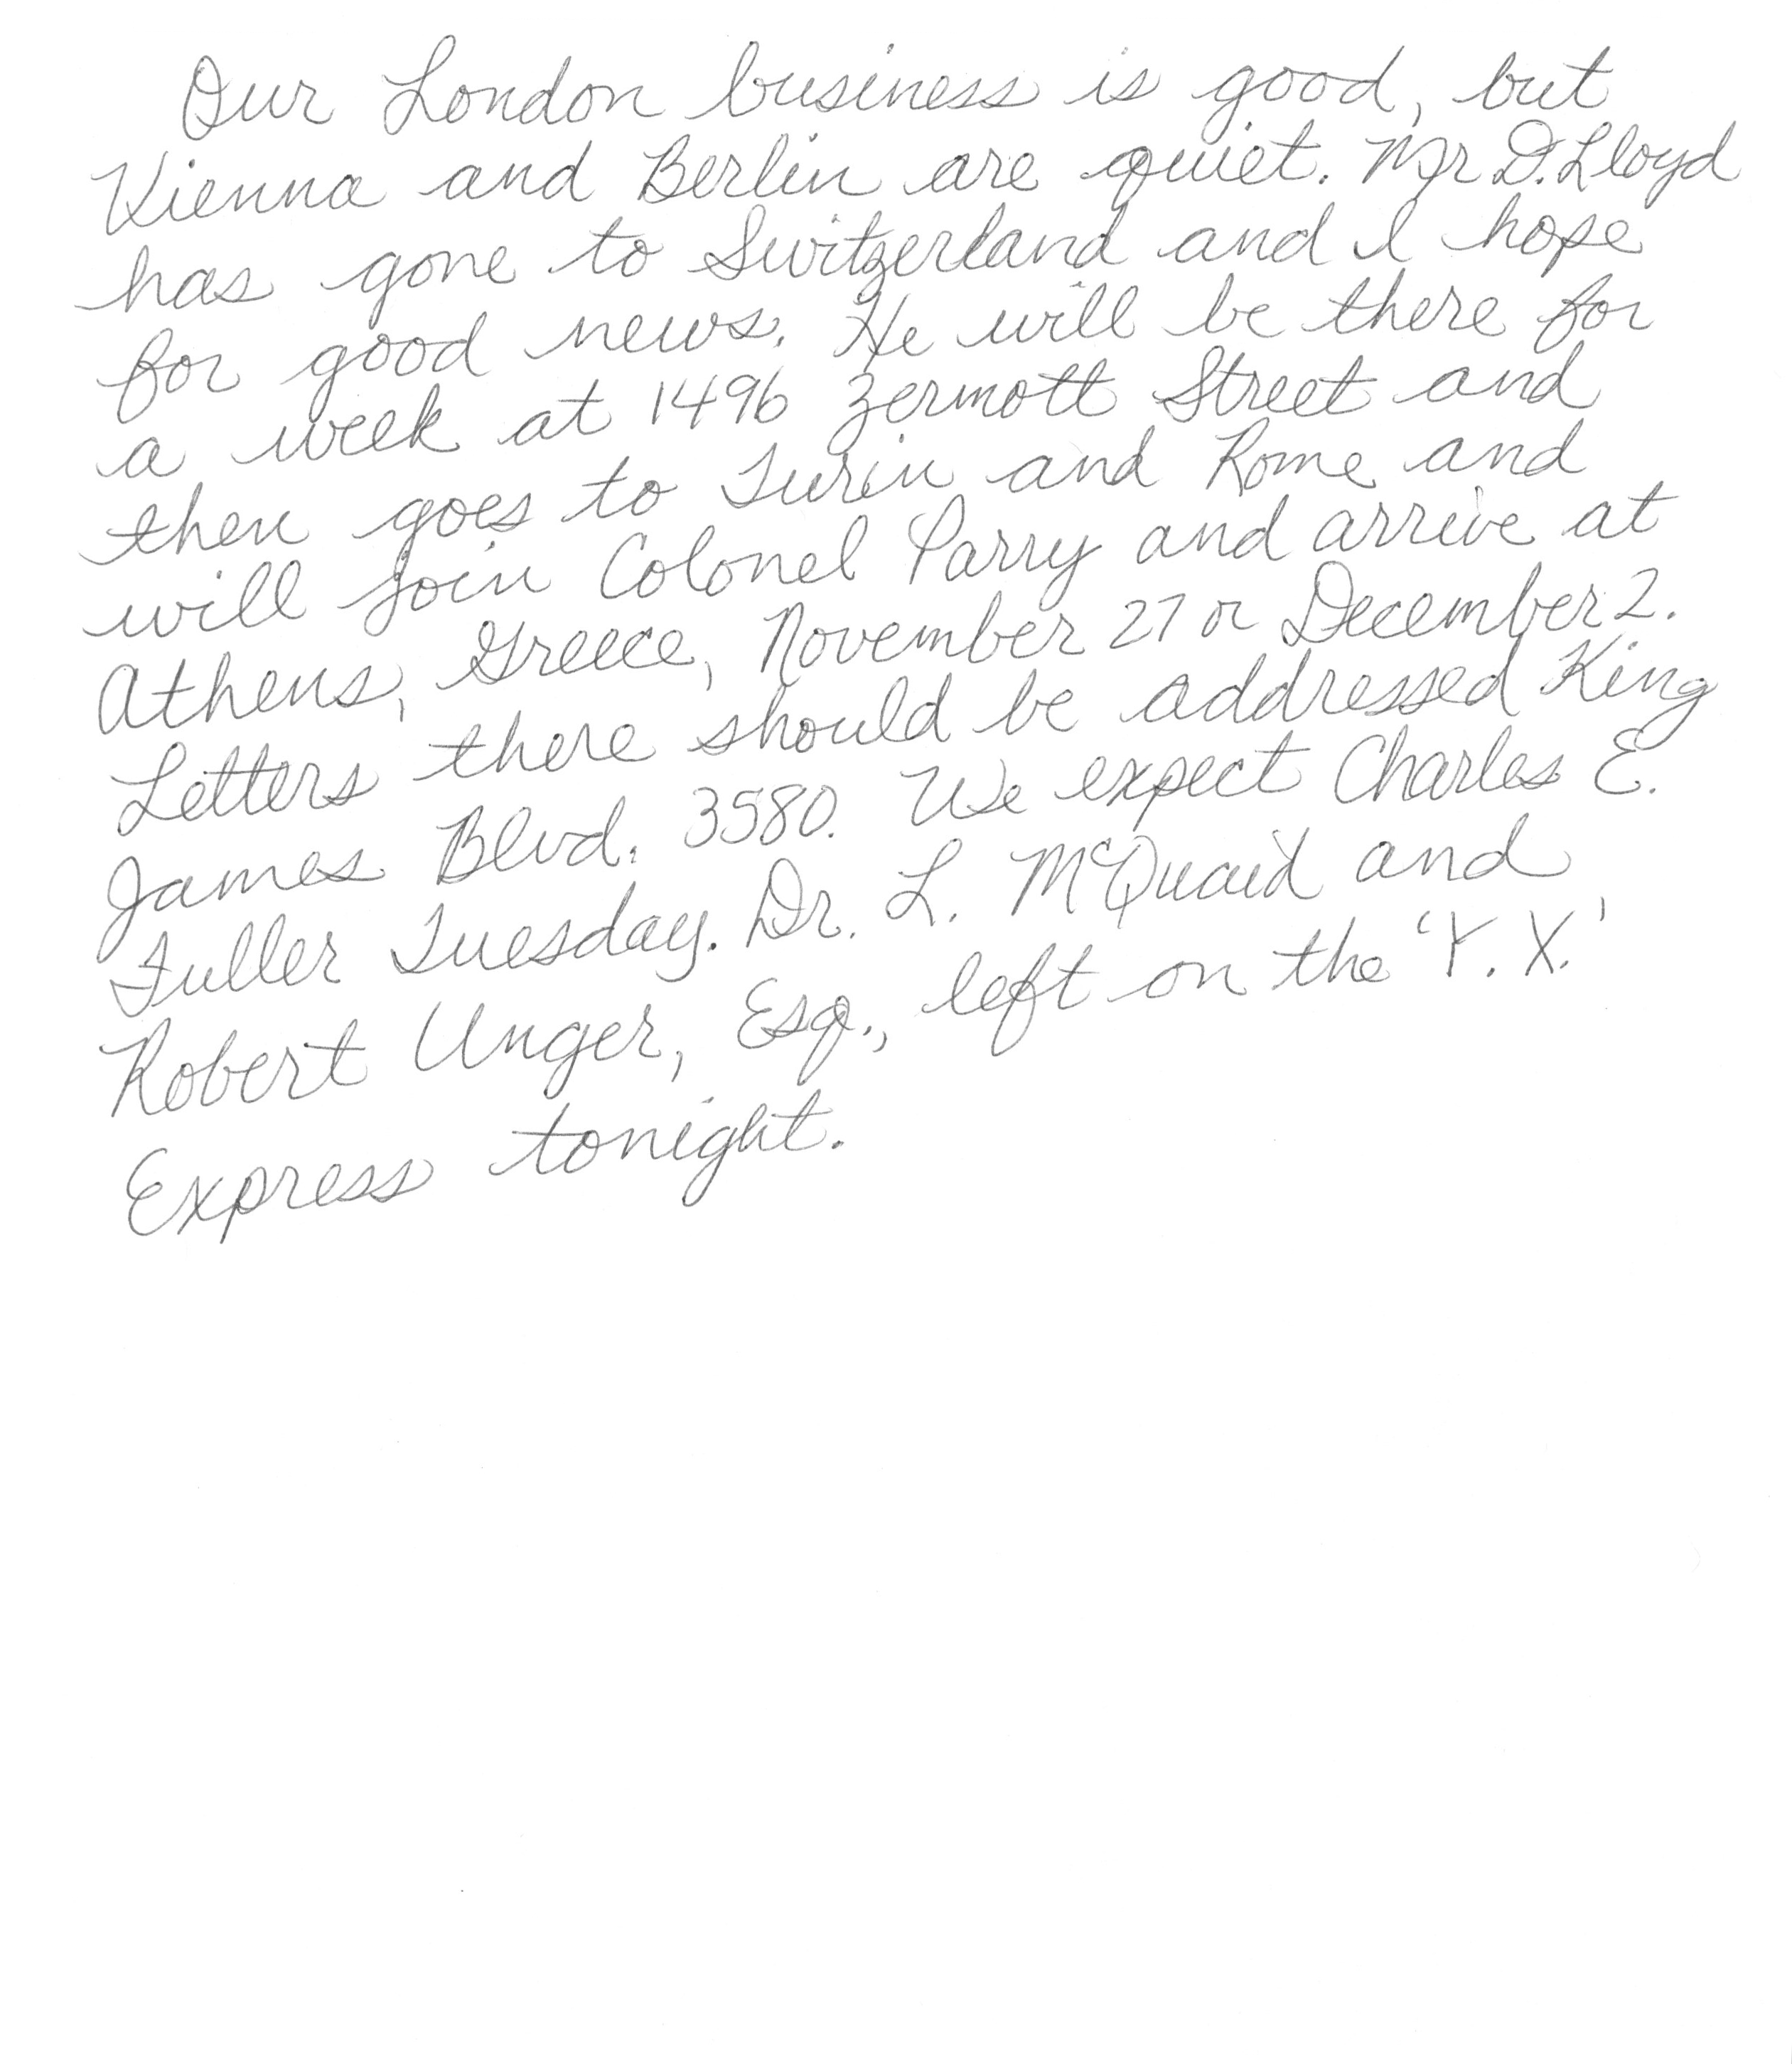 Our London business is good, but
Vienna and Berlin are quiet. Mr D. Lloyd
has gone to Switzerland and I hope
for good news. He will be there for
a week at 1496 Zermott Street and
then goes to Turin and Rome and
will join Colonel Parry and arrive at
Athens, Greece, November 27 or December 2.
Letters there should be addressed King
James Blvd. 3580. We expect Charles E.
Fuller Tuesday. Dr. L. McQuaid and
Robert Unger, Esq., left on the 'Y. X.'
Express tonight.